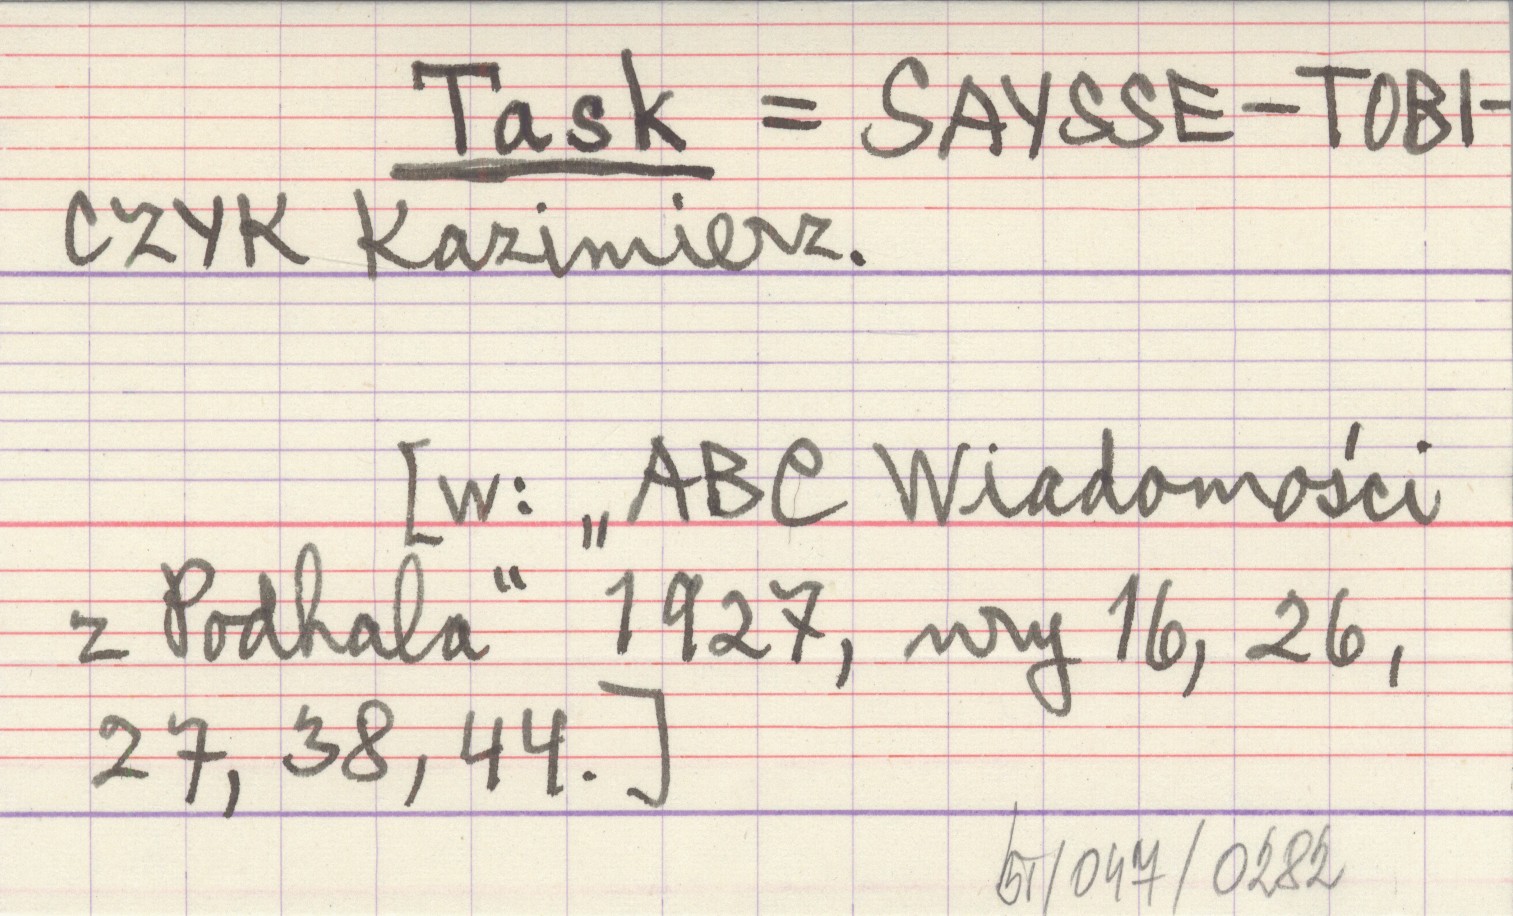 Task = SAYSSE-TOBI-
CZYK Kazimierz.
[w: „ABC Wiadomości
z Podhala“ 1927, nry 16, 26,
27, 38, 44.]
/047/0282